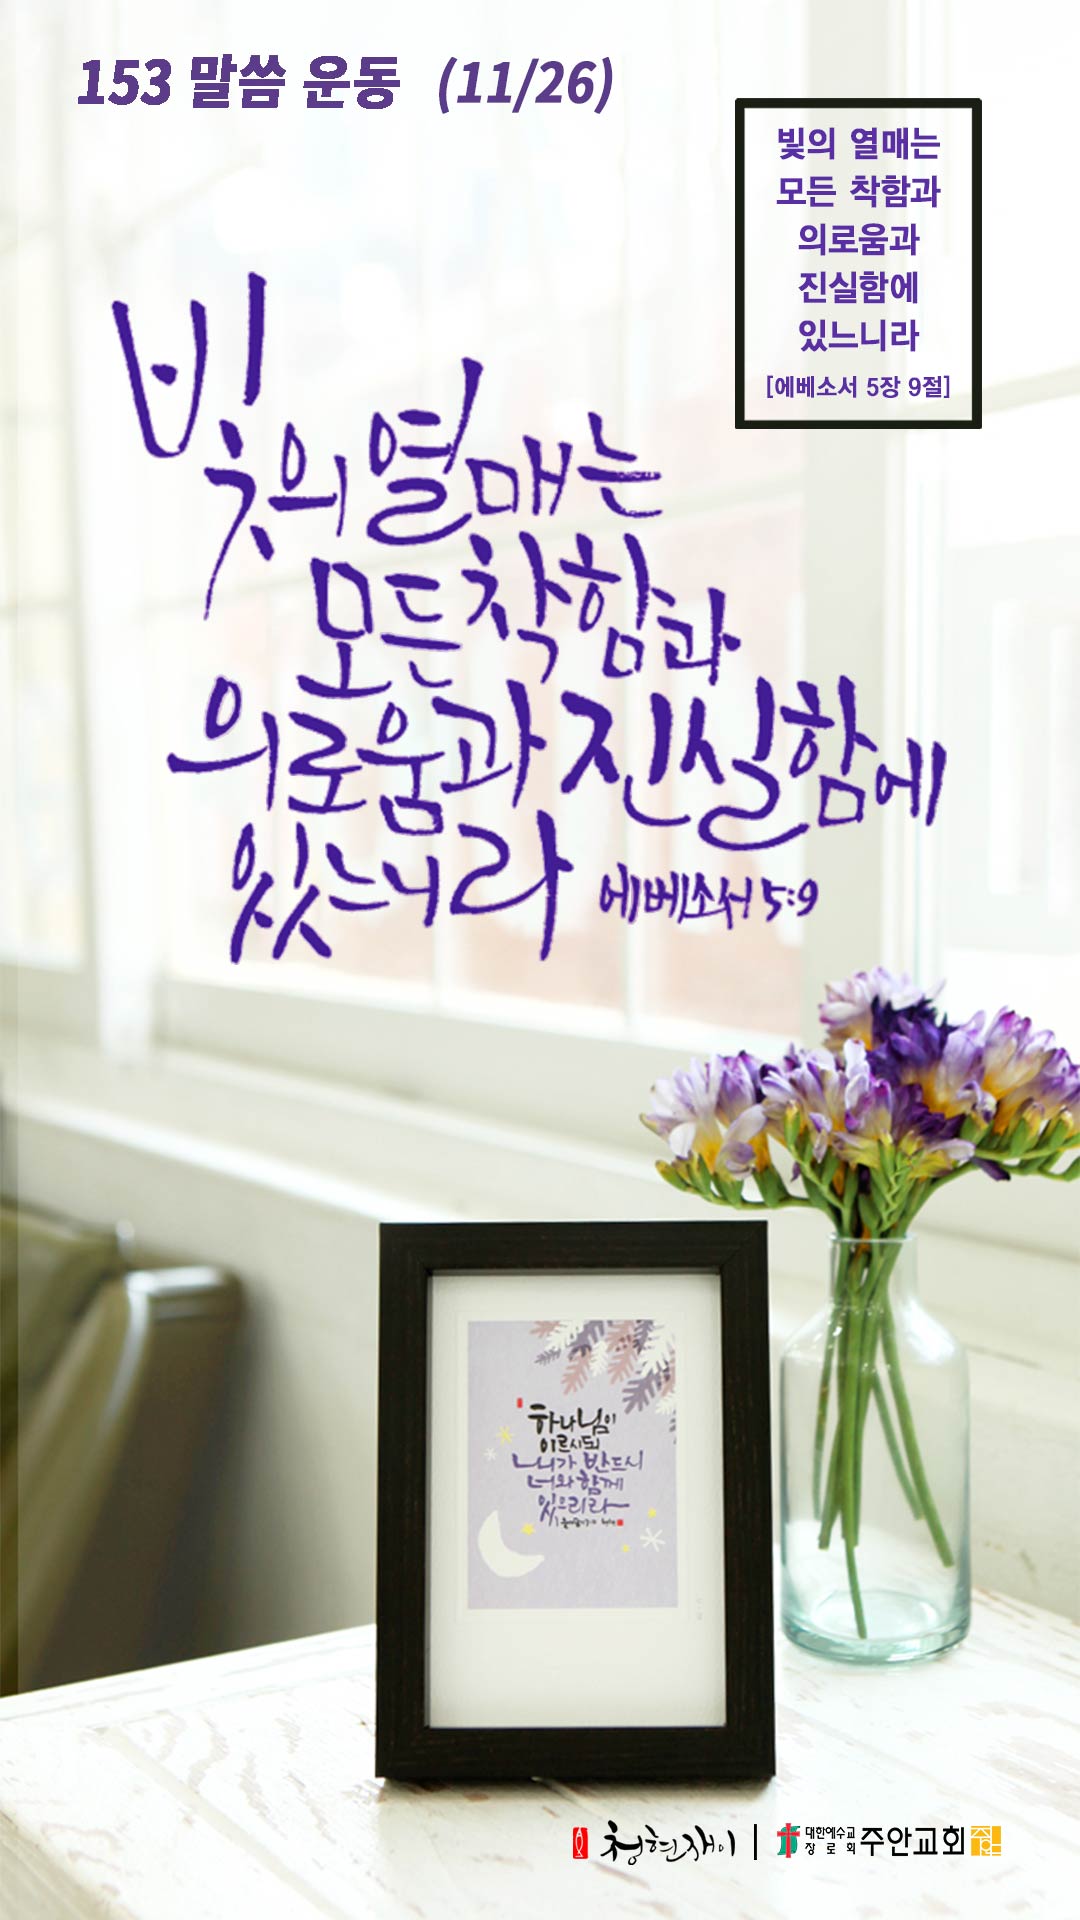 153 말씀 운동 (11/26)
빛의 열매는
모든 착함과
의로움과
진실함에
있느니라
[에베소서 5장 9절]
빛의 열매는
모든 착함과
의로움과 진실함에
있느니라 에베소서 5:9
하나님이
이르시되
내가 반드시
너와 함께
있으리라
청현재이
대한예수교
장로회
주안교회